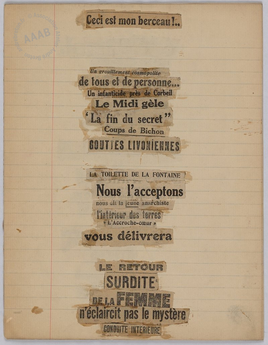 AAAB
Ceci est mon berceau !..
Un grouillement
de tous et de personne...
Un infanticide près de Corbeil
Le Midi gèle
"La fin du secret"
Coups de Bichon
GOUTTES LIVONIENNES
LA TOILETTE DE LA FONTAINE
Nous l'acceptons
nous dit le jeune anarchiste
l'intérieur des terres
« L'Accroche-cœur »
vous délivrera
LE RETOUR
SURDITE
DE LA FEMME
n'éclaircit pas le mystère
CONDUITE INTERIEURE